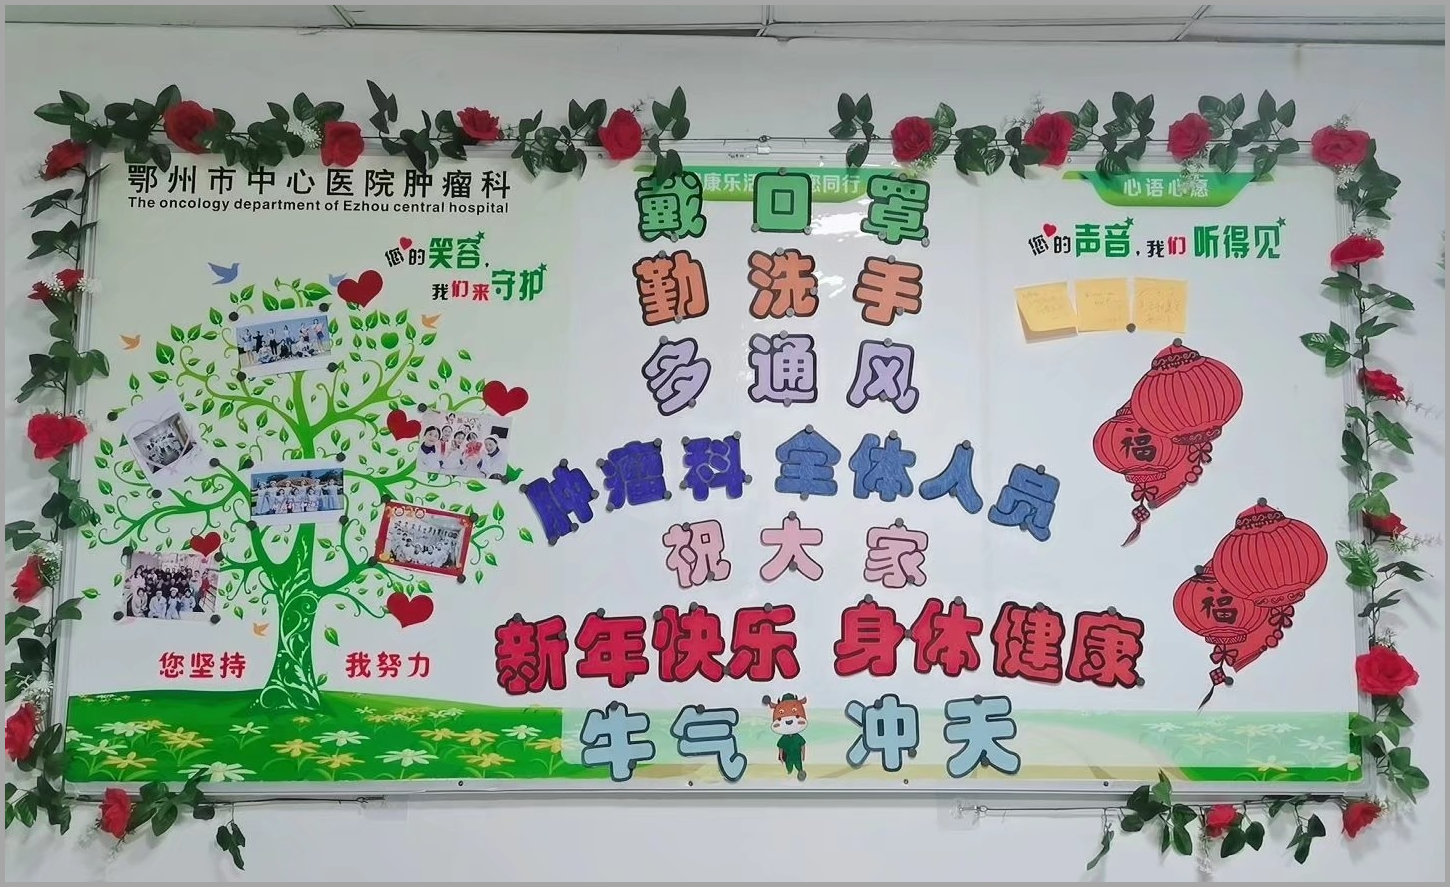 鄂州市中心医院肿瘤科
The oncology department of Ezhou central hospital
您的笑容,
我们来守护
您坚持 我努力
康乐活 您同行
戴口罩
勤洗手
多通风
肿瘤科 全体人员
祝大家
新年快乐 身体健康
牛气 冲天
心语心愿
您的声音,我们听得见
福
福